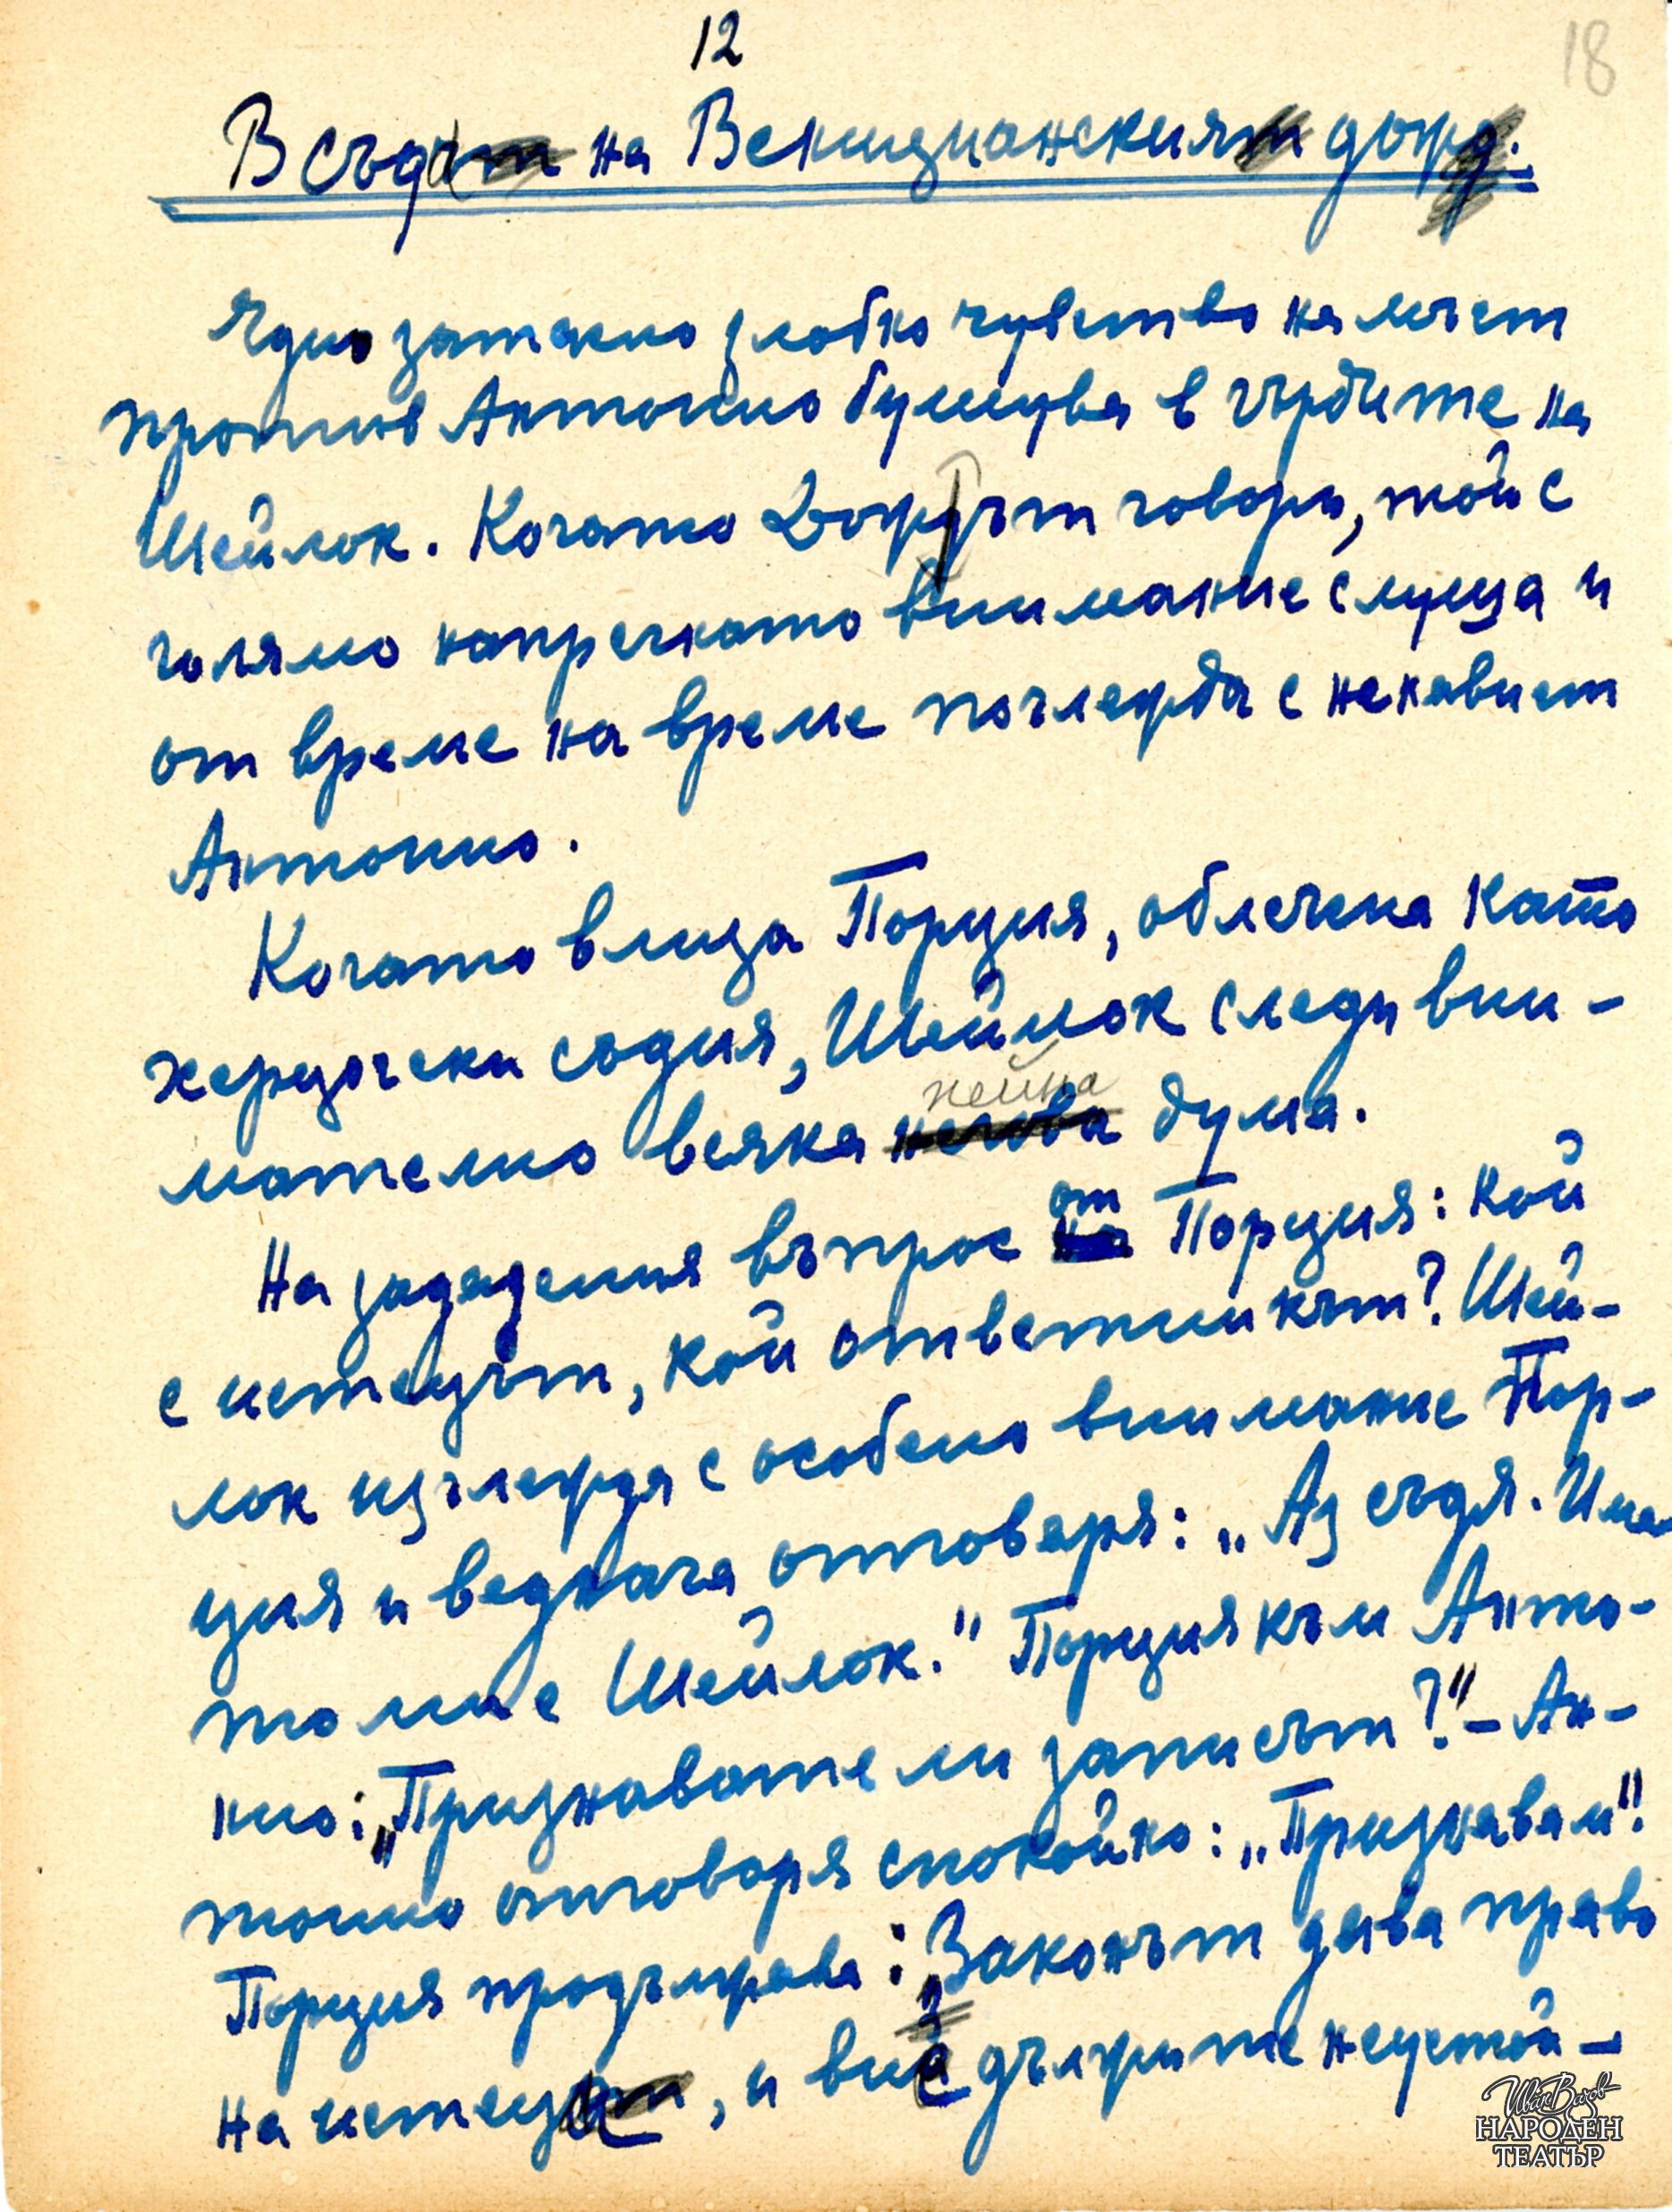 12
18
В съда на Венецианския дож.
Едно затаено злобно чувство на мъст
против Антонио бушува в гърдите на
Шейлок. Когато Дожът говори, той с
голямо напрегнато внимание слуша и
от време на време поглежда с ненавист
Антонио.
Когато влиза Порция, облечена като
херцогски съдия, Шейлок следи вни-
мателно всяка нейна дума.
На зададения въпрос от Порция: кой
е ищецът, кой ответникът? Шей-
лок изглежда с особено внимание Пор-
ция и веднага отговаря: „Аз съдя. Име-
то ми е Шейлок." Порция към Анто-
нио: „Признавате ли записът?" – Ан-
тонио отговаря спокойно: „Признавам".
Порция продължава: „Законът дава право
на ищеца, и вие дължите неустой-
Иван Вазов
НАРОДЕН
ТЕАТЪР